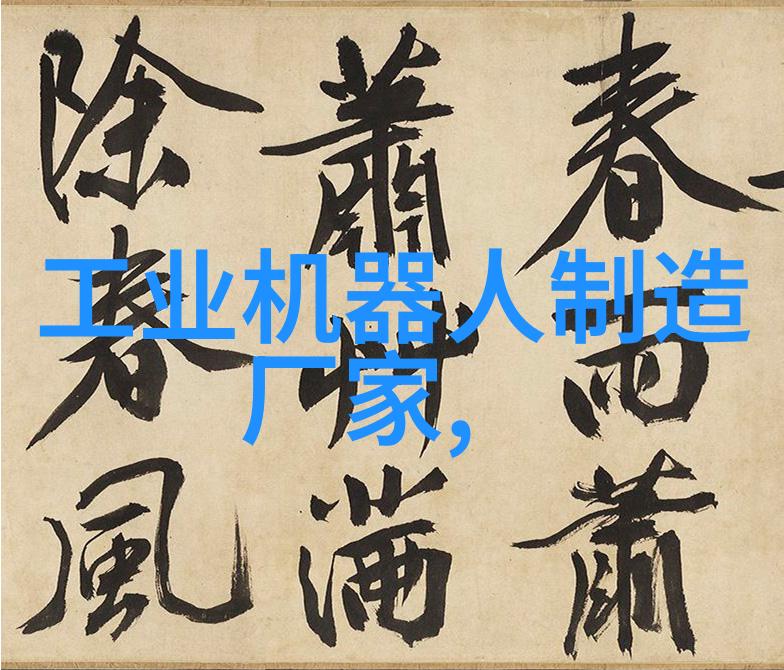 春雨蕭
蕭艸滿
除春風
工业机器人制造
厂家,